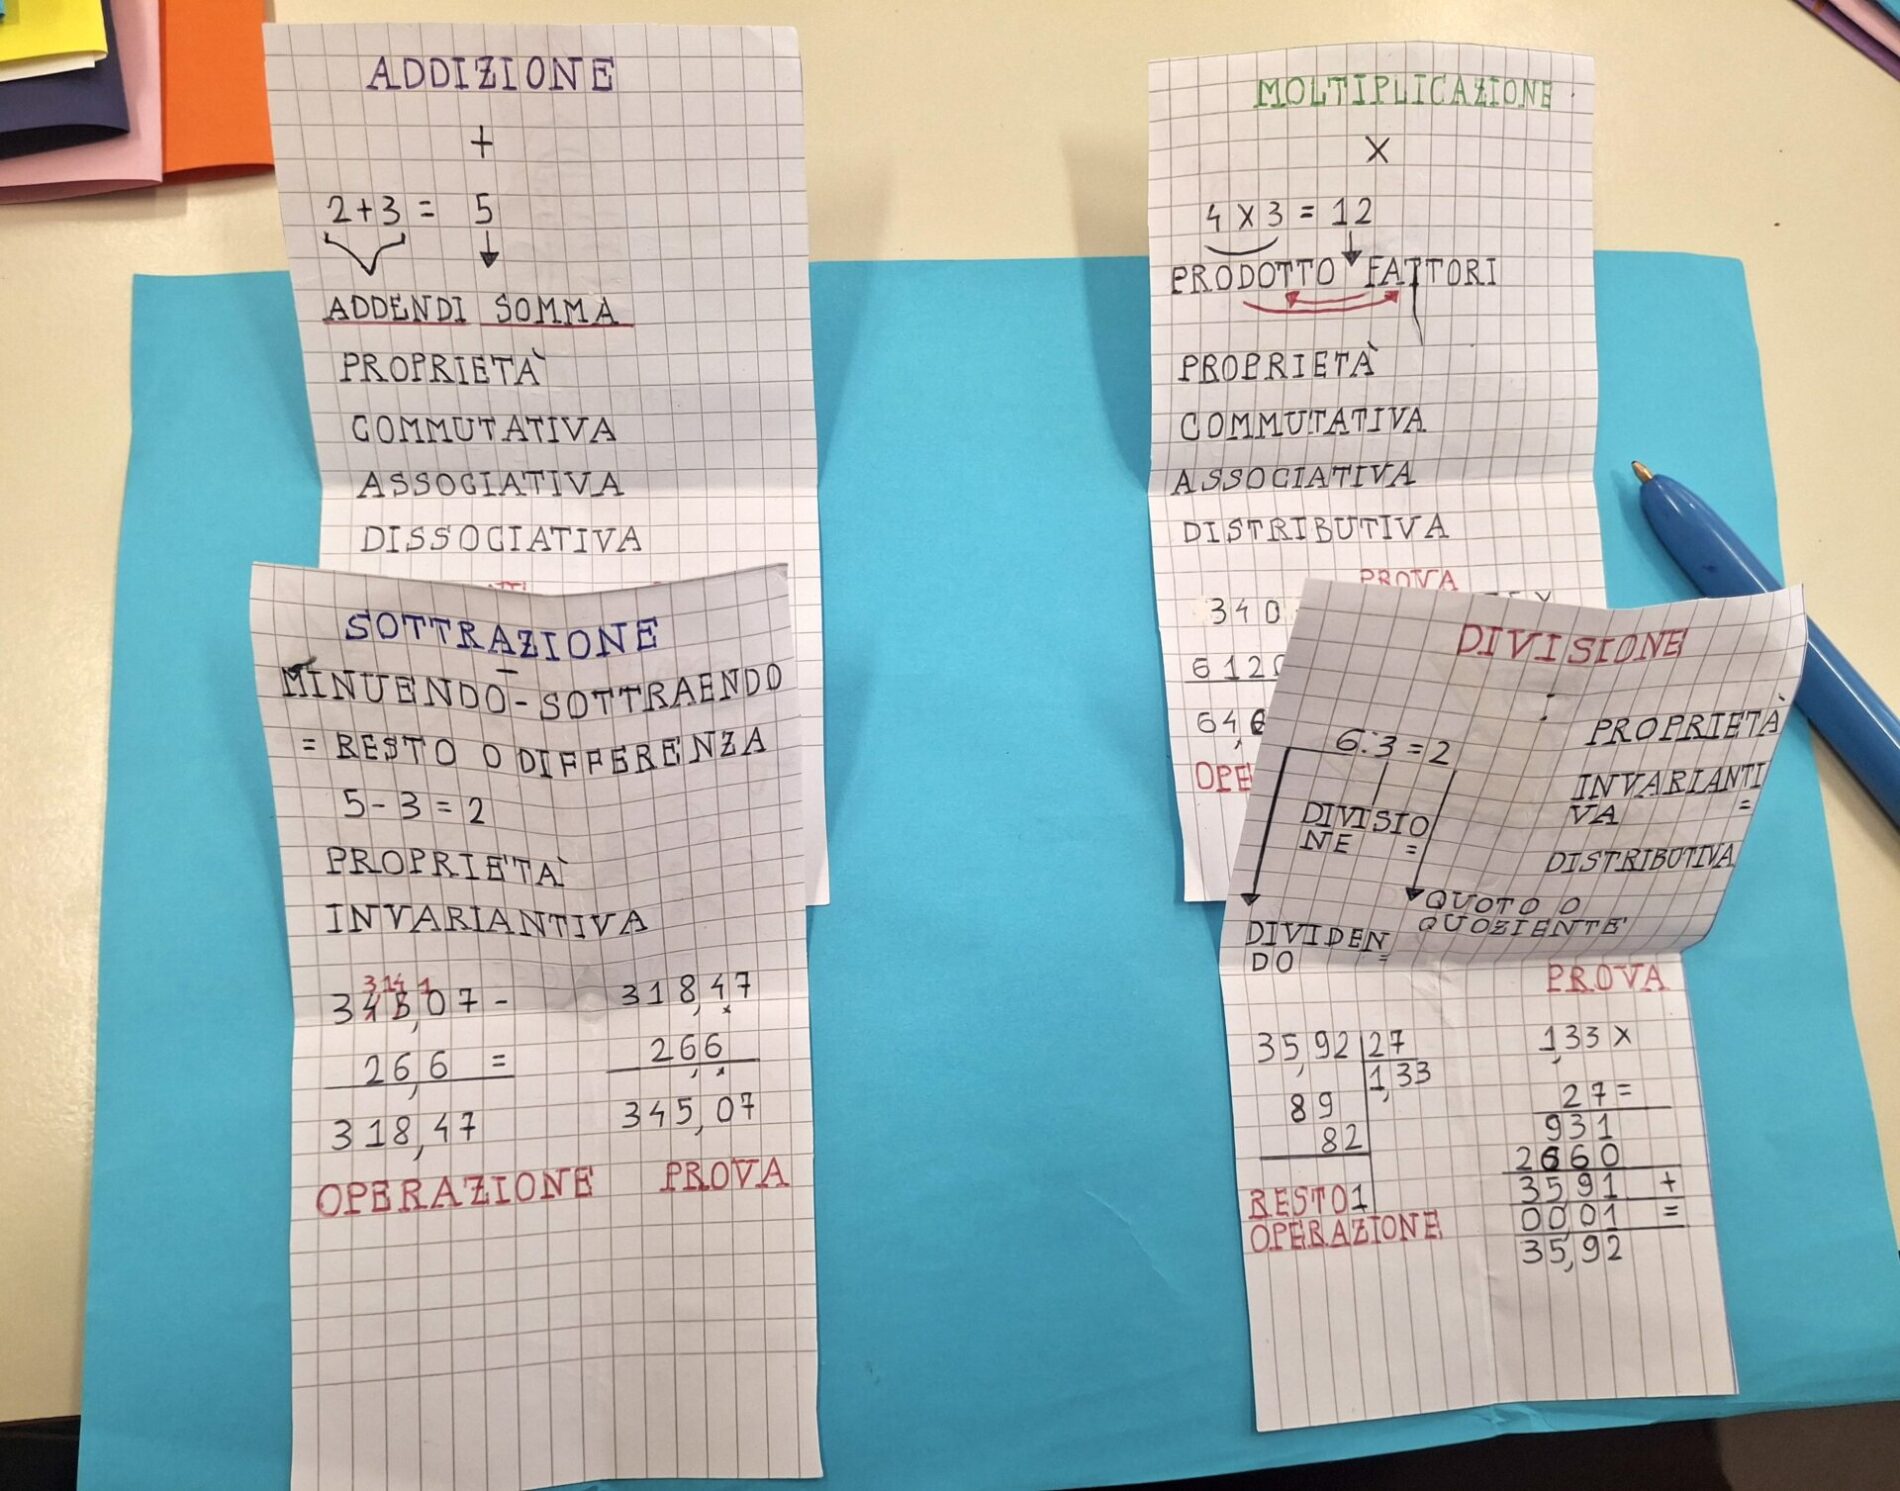 ADDIZIONE
+
2+3 = 5
ADDENDI SOMMA
PROPRIETÀ
COMMUTATIVA
ASSOCIATIVA
DISSOCIATIVA
SOTTRAZIONE
-
MINUENDO - SOTTRAENDO
= RESTO O DIFFERENZA
5 - 3 = 2
PROPRIETÀ
INVARIANTIVA
3 14 1
345,07 -
26,6 =
318,47
OPERAZIONE
318,47
26,6
345,07
PROVA
MOLTIPLICAZIONE
X
4 X 3 = 12
PRODOTTO FATTORI
PROPRIETÀ
COMMUTATIVA
ASSOCIATIVA
DISTRIBUTIVA
PROVA
340
6120
646
OPE
DIVISIONE
:
6:3=2
DIVISIO
NE =
DIVIDEN
DO =
QUOTO O
QUOZIENTE
PROPRIETÀ
INVARIANTI
VA =
DISTRIBUTIVA
35,92 27
1,33
89
82
RESTO 1
OPERAZIONE
PROVA
1,33 X
27=
931
2660
3591 +
0001 =
35,92